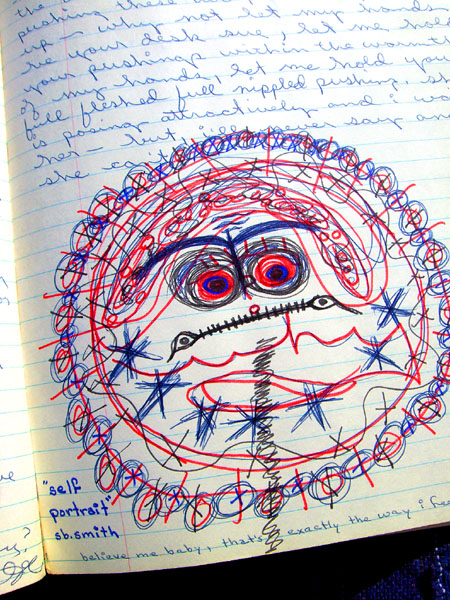 pushing these
up – why not let my hands
your desk sue, let me hold
your pushings within the warmth
of my hands, let me hold you
full fleshed full nippled pushing. sh
is posing attractively and i wo
her – but i'll never say an
she ca
"self
portrait"
sb.smith
believe me baby, that's exactly the way i fee